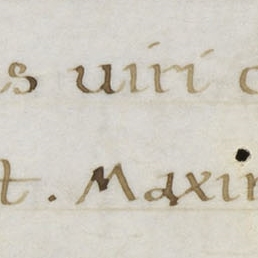 s uiri
t. Maxim